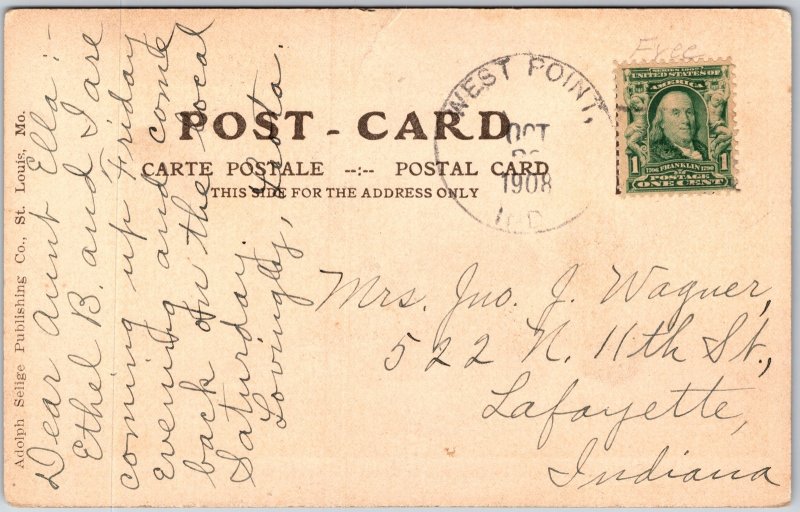 Free
POST - CARD
CARTE POSTALE --:-- POSTAL CARD
THIS SIDE FOR THE ADDRESS ONLY
WEST POINT,
OCT
1908
IND
SERIES 1902
UNITED STATES OF
AMERICA
1706 FRANKLIN 1790
1 POSTAGE 1
ONE CENT
Mrs. Jno. J. Wagner,
522 N. 11th St.,
Lafayette,
Indiana
Adolph Selige Publishing Co., St. Louis, Mo.
Dear Aunt Ella :-
Ethel B. and I are
coming up Friday
evening and come
back on the local
Saturday.
Lovingly,